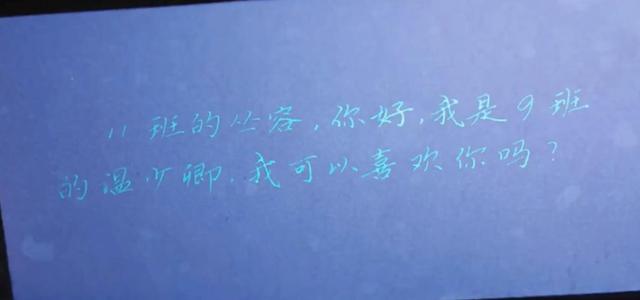 11班的丛容,你好,我是9班
的温少卿.我可以喜欢你吗?